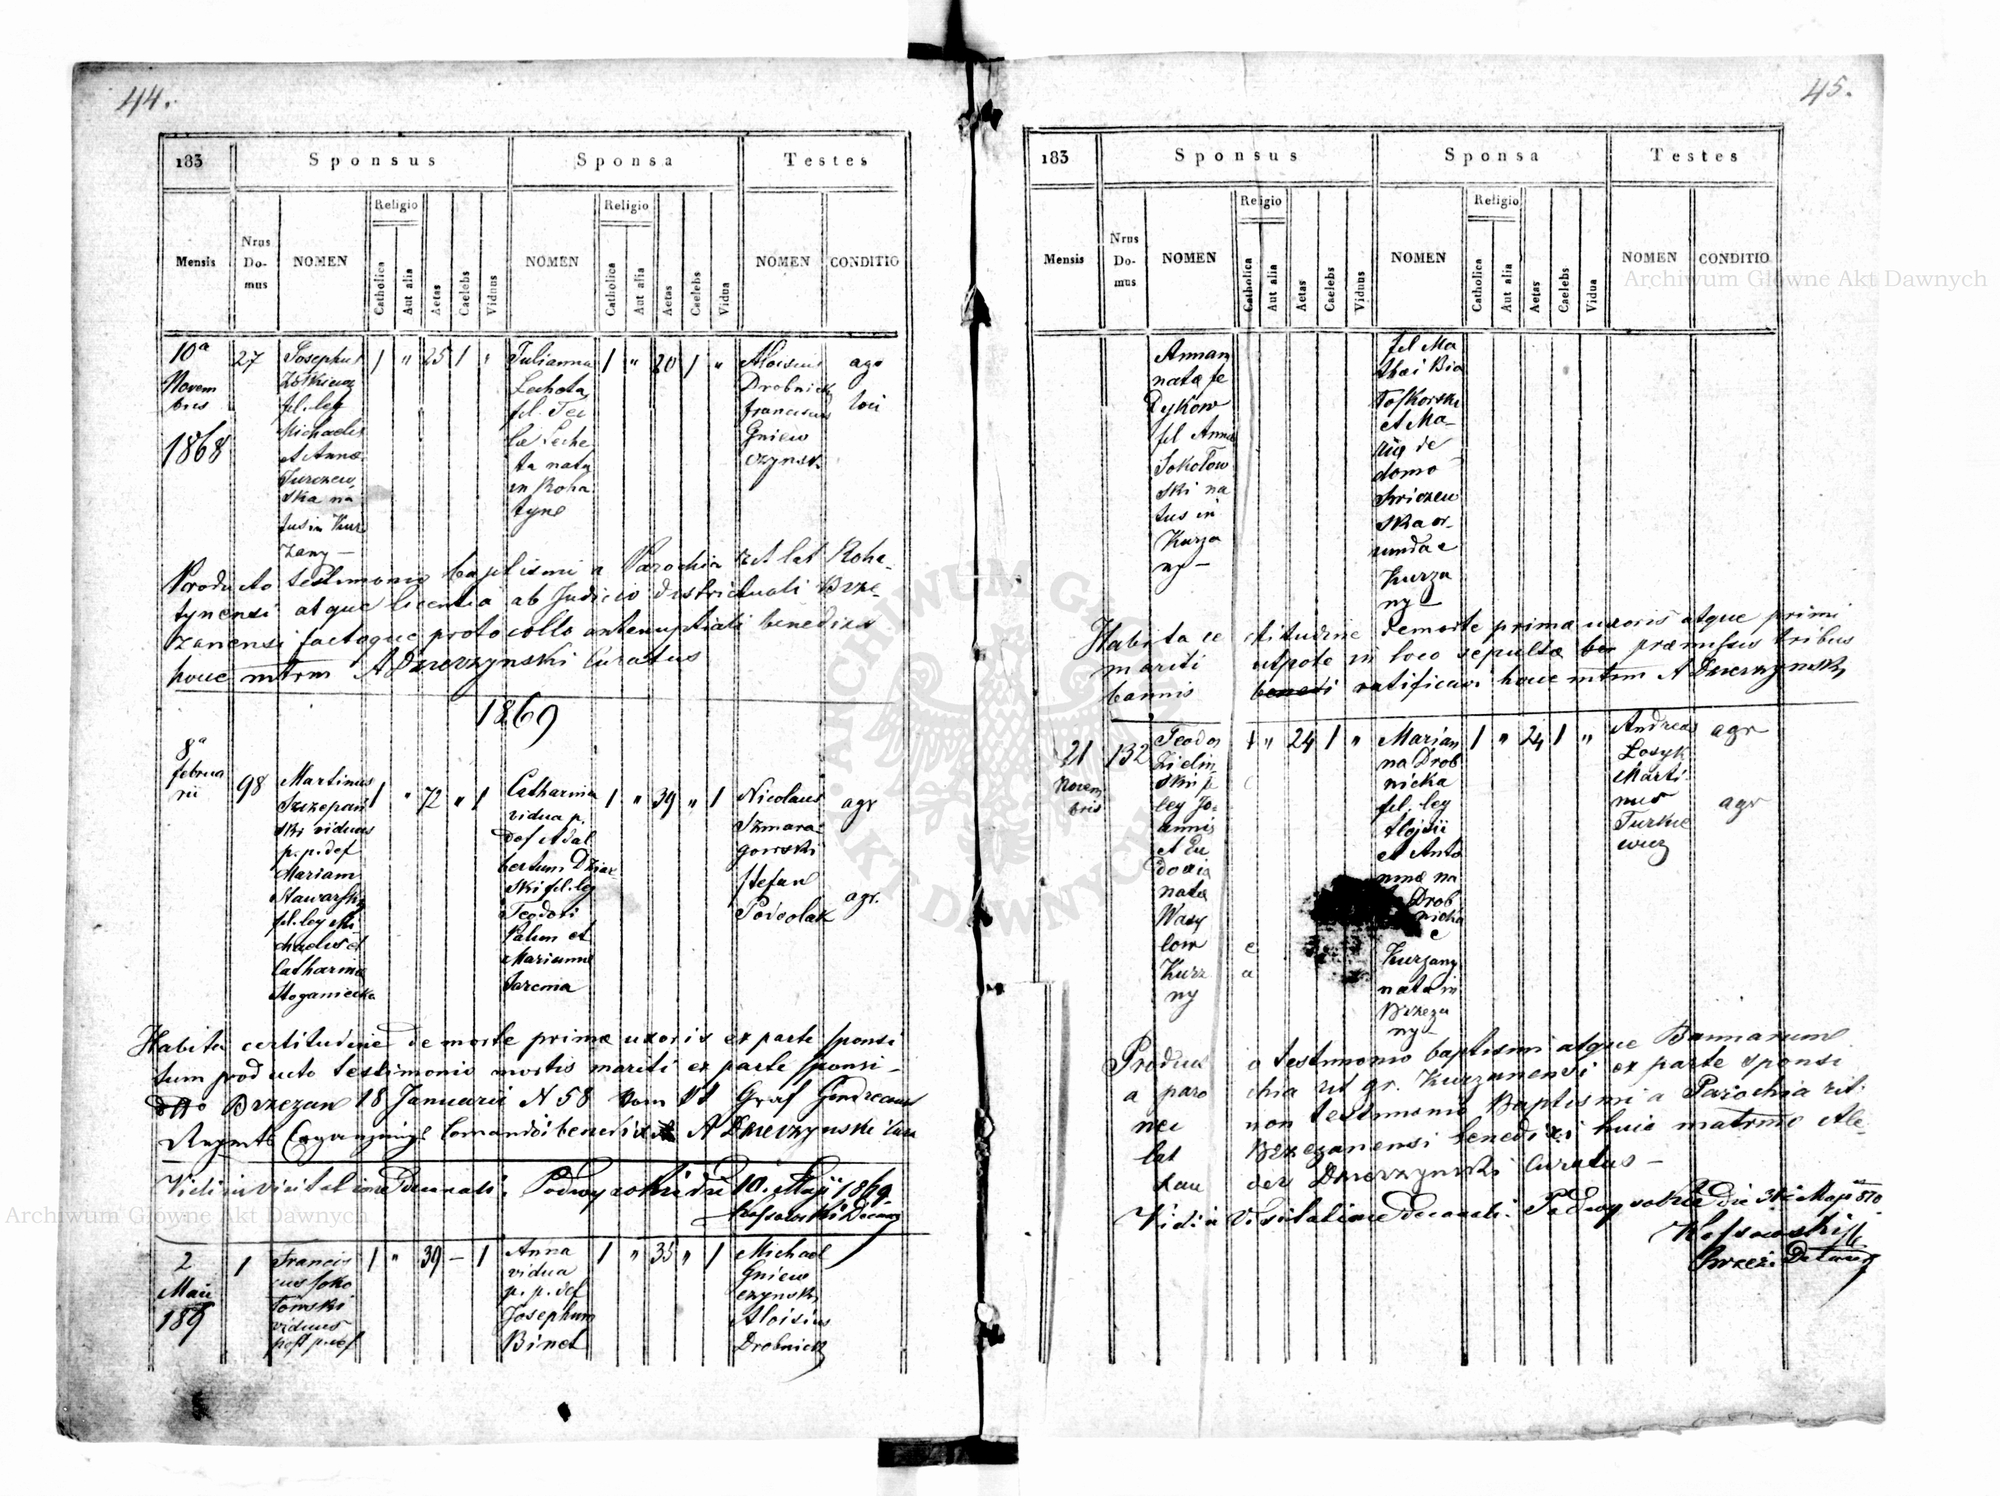 44.
183
Sponsus
Sponsa
Testes
Mensis
Nrus Do-mus
NOMEN
Religio
Catholica
Aut alia
Aetas
Caelebs
Viduus
NOMEN
Religio
Catholica
Aut alia
Aetas
Caelebs
Vidua
NOMEN
CONDITIO
10a
Novem
bris
1868
27
Josephus
fil. leg
Michaelis
et Annae
Turczew
ska na
tus in Kur
zany —
1 " 25 1 "
Julianna
Lechota
fil. Tec
la Leche
ta nata
in Roha
tyne
1 " 20 1 "
Aloisius
Drobnicki
Franciscus
Gniew
czynski
agr
loci
Producto testimonio baptismi a Parochia rit lat Roha-
tynensi atque licentia ab Judicio districtuali Brze-
zanensi factoque protocollo antenuptiali benedixi
hunc mtrm A Dzierzynski Curatus
1869
8a
februa
rii
98
Martinus
Szczepań
ski viduus
p. p. def
Mariam
Stawarska
fil. leg Mi
chaelis et
Catharina
Roganiecka
1 " 72 " 1
Catharina
vidua p.
def Adal
bertum Dziar
ski fil. leg
Teodori
Palun et
Marianna
Jarema
1 " 39 " 1
Nicolaus
Szmara-
gowski
Stefan
Podolak
agr
agr.
Habita certitudine de morte primae uxoris ex parte sponsi
tum producto testimonio mortis mariti ex parte sponsi-
dtto Brzezan 18 Januarii N 58 vom Graf
Regmts Comando benedixi A Dzierzynski Cura
Vidi in visitatione Decanali. Podwysokie die 10. Maji 1869
2
Maii
189
1
Francis
cus Soko
łowski
viduus
post p. def
1 " 39 — 1
Anna
vidua
p. p. def
Josephum
Binet
1 " 35 " 1
Michael
Gniew
czynski
Aloisius
Drobnicki
45.
183
Sponsus
Sponsa
Testes
Mensis
Nrus Do-mus
NOMEN
Religio
Catholica
Aut alia
Aetas
Caelebs
Viduus
NOMEN
Religio
Catholica
Aut alia
Aetas
Caelebs
Vidua
NOMEN
CONDITIO
Annam
nata Fe
Dykow
fil Anna
Sokołow
ski na
tus in
Kurza
ny —
fil Ma
thaei Bia
łoskorski
et Ma-
ria de
domo
ska or-
iunda e
Kurza
ny —
Habita certitudine de morte prima uxoris atque primi
mariti utpote in loco sepultae praemissis tribus
bannis ratificavi hunc mtrm A Dzierzynski
21
Novem
bris
132
Teodor
Zielin-
ski f
leg Jo-
annis
et Eu
doxia
nata
Wasy
low
Kurz
ny
1 " 24 1 "
Marian
na Drob
nicka
fil. leg
Alojsii
et Anto
ninae na
Drob
nicka
e
Kurzany
nata in
Brzeza
ny —
1 " 24 1 "
Andreas
Losyk
Marti
nus
Turkie
wicz
agr
agr
Producto testimonio baptismi atque Bannarum
a parochia rit gr. Kurzanensi ex parte sponsi
nec non testimonio Baptismi a Parochia rit.
lat Brzezanensi benedixi huic matrmo Ale-
xander Dzierzynski Curatus —
Vidi in Visitatione decanali. Podwysokie die 31 Maji 870
Kossowski
Brzez. Decanus
Archiwum Główne Akt Dawnych
Archiwum Główne Akt Dawnych
ARCHIWUM GŁÓWNE AKT DAWNYCH